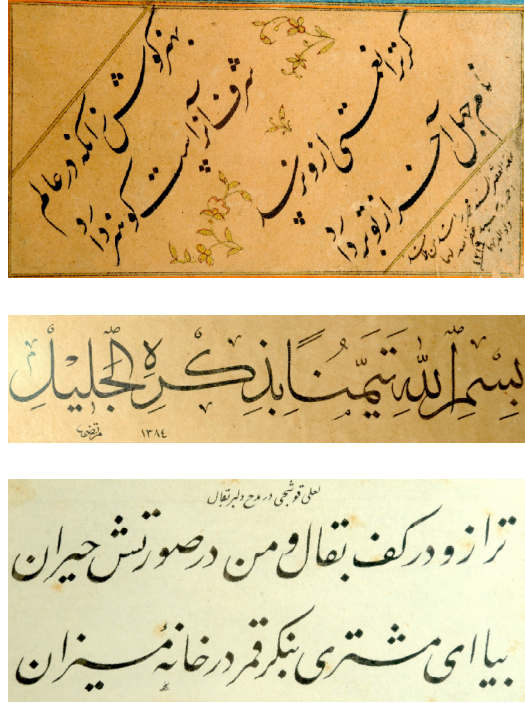 بهنر کوش زانکه در عالم
شرف آنراست کو هنر دارد
گر ترا نعمتی ازو نرسد
نام جهل آخر از تو بردارد
بِسْمِ اللهِ تَيَمُّنًا بِذِكْرِهِ الْجَلِيلِ
۱۳۸۴
لعلی قوشجی در مدح دلبر بقال
ترازو در کف بقال و من در صورتش حیران
بیا ای مشتری بنکر قمر در خانهٔ میزان